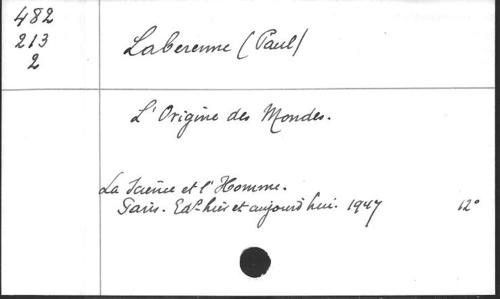 482
213
2
Laberenne (Paul)
L'Origine des Mondes.
La Science et l'Homme.
Paris. Edns hier et aujourd'hui. 1947 12°